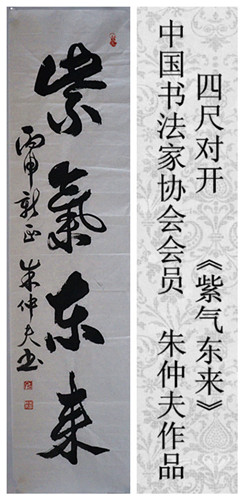 紫氣东来
丙申新正 朱仲夫书
四尺对开 《紫气东来》
中国书法家协会会员 朱仲夫作品